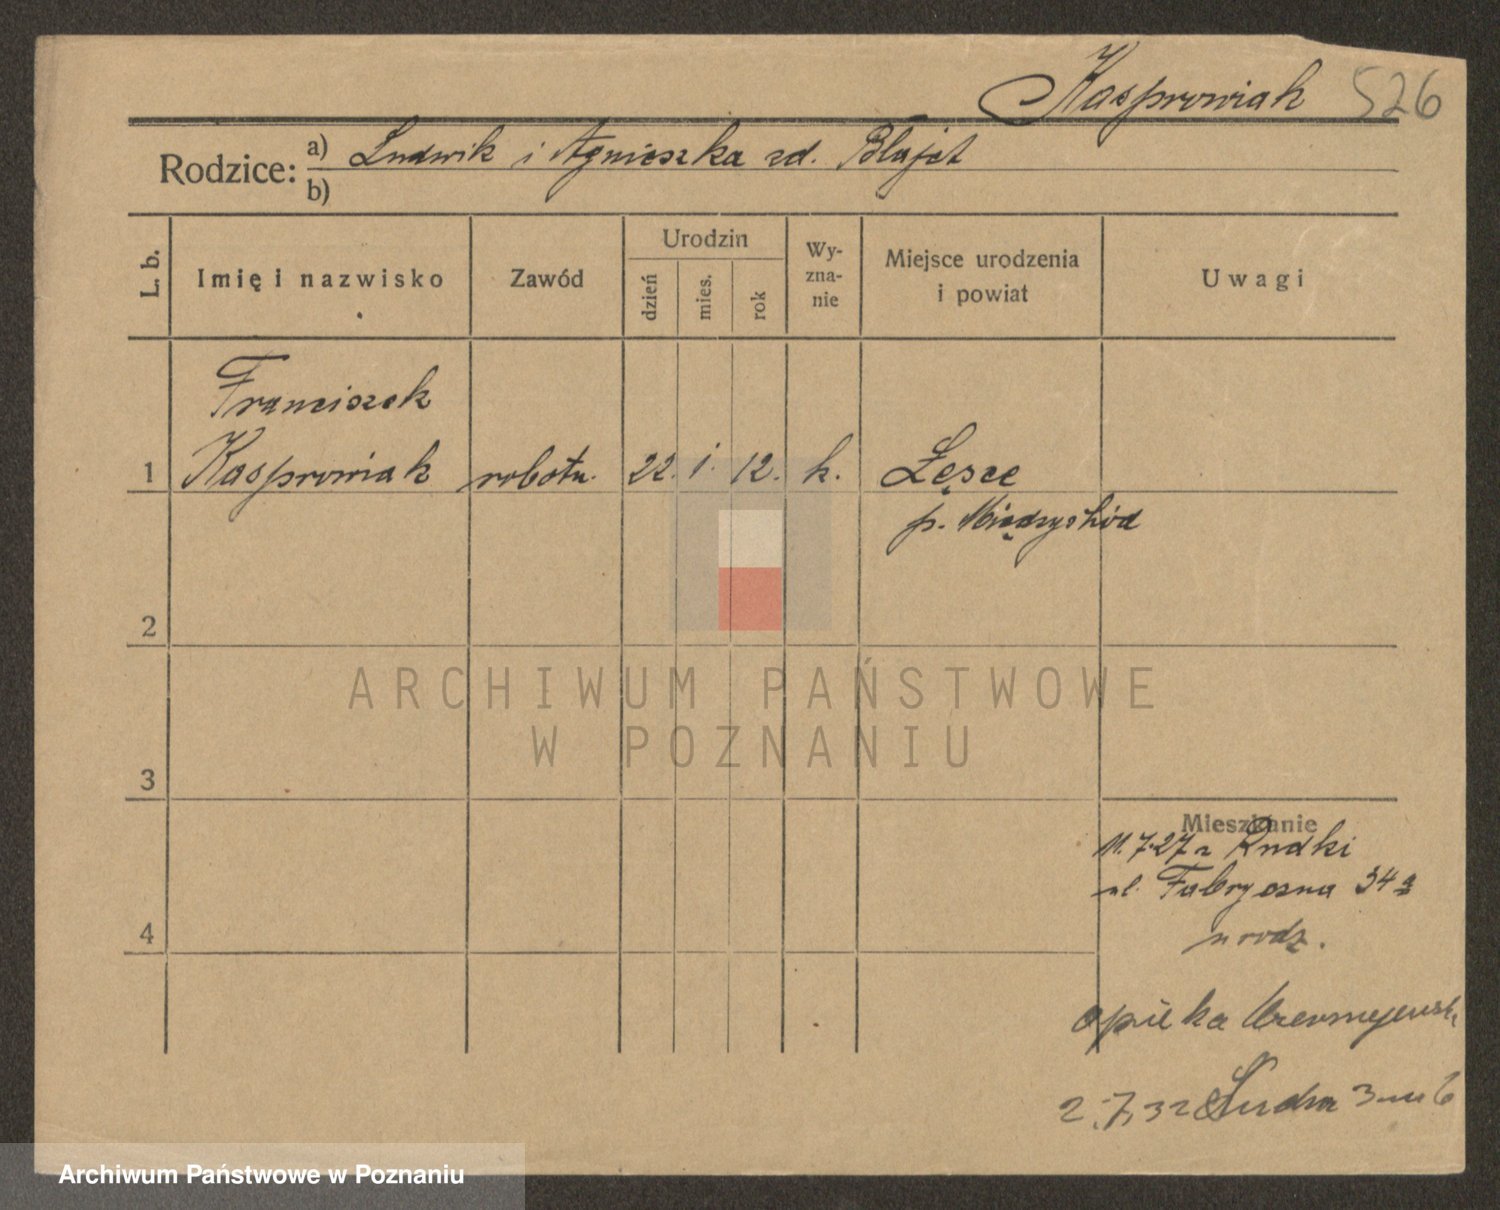 Kasprowiak 526
Rodzice: a) Ludwik i Agnieszka zd. Błajet
b)
L. b. Imię i nazwisko Zawód Urodzin dzień mies. rok Wy-zna-nie Miejsce urodzenia i powiat Uwagi
Franciszek
1 Kasprowiak robotn. 22. 1. 12. k. Łęsce
p. Międzychód
2
ARCHIWUM PAŃSTWOWE
W POZNANIU
3
Mieszkanie
11.7.27 z Rudki
ul. Fabryczna 34a
u rodz.
4
opieka
2.7.32 3 m 6
Archiwum Państwowe w Poznaniu